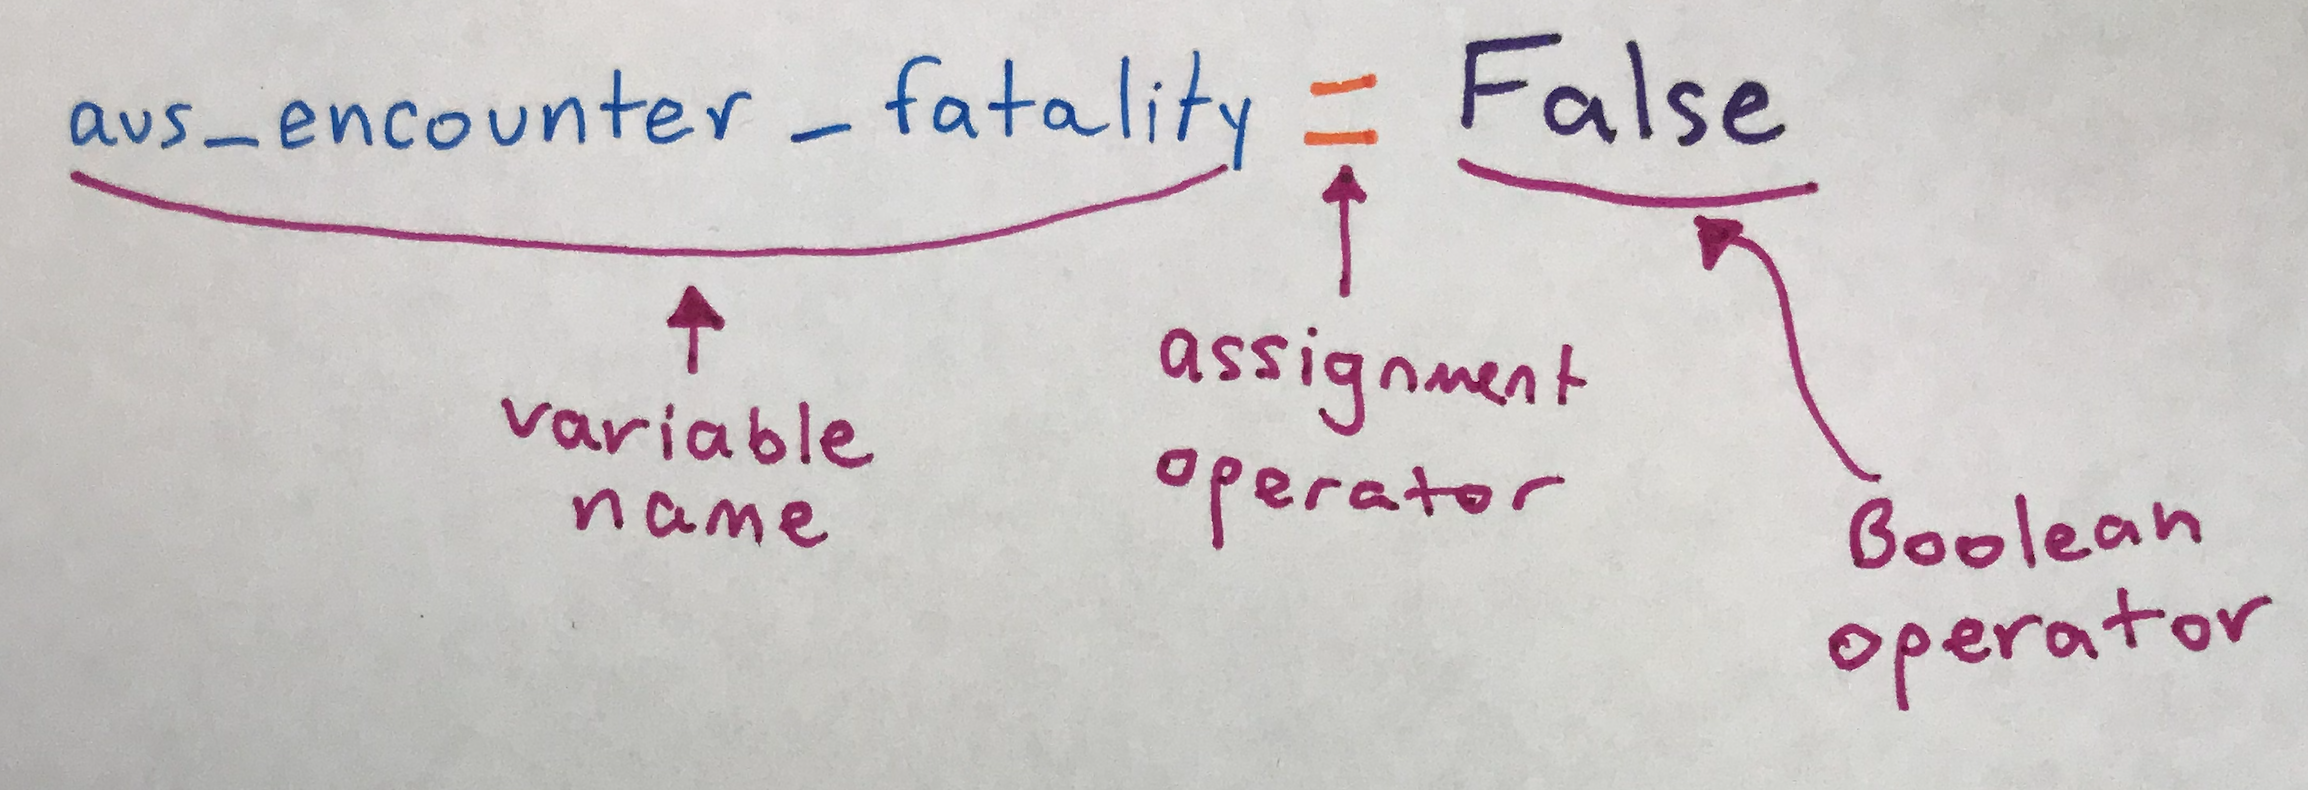 avs_encounter_fatality = False
variable
name
assignment
operator
Boolean
operator